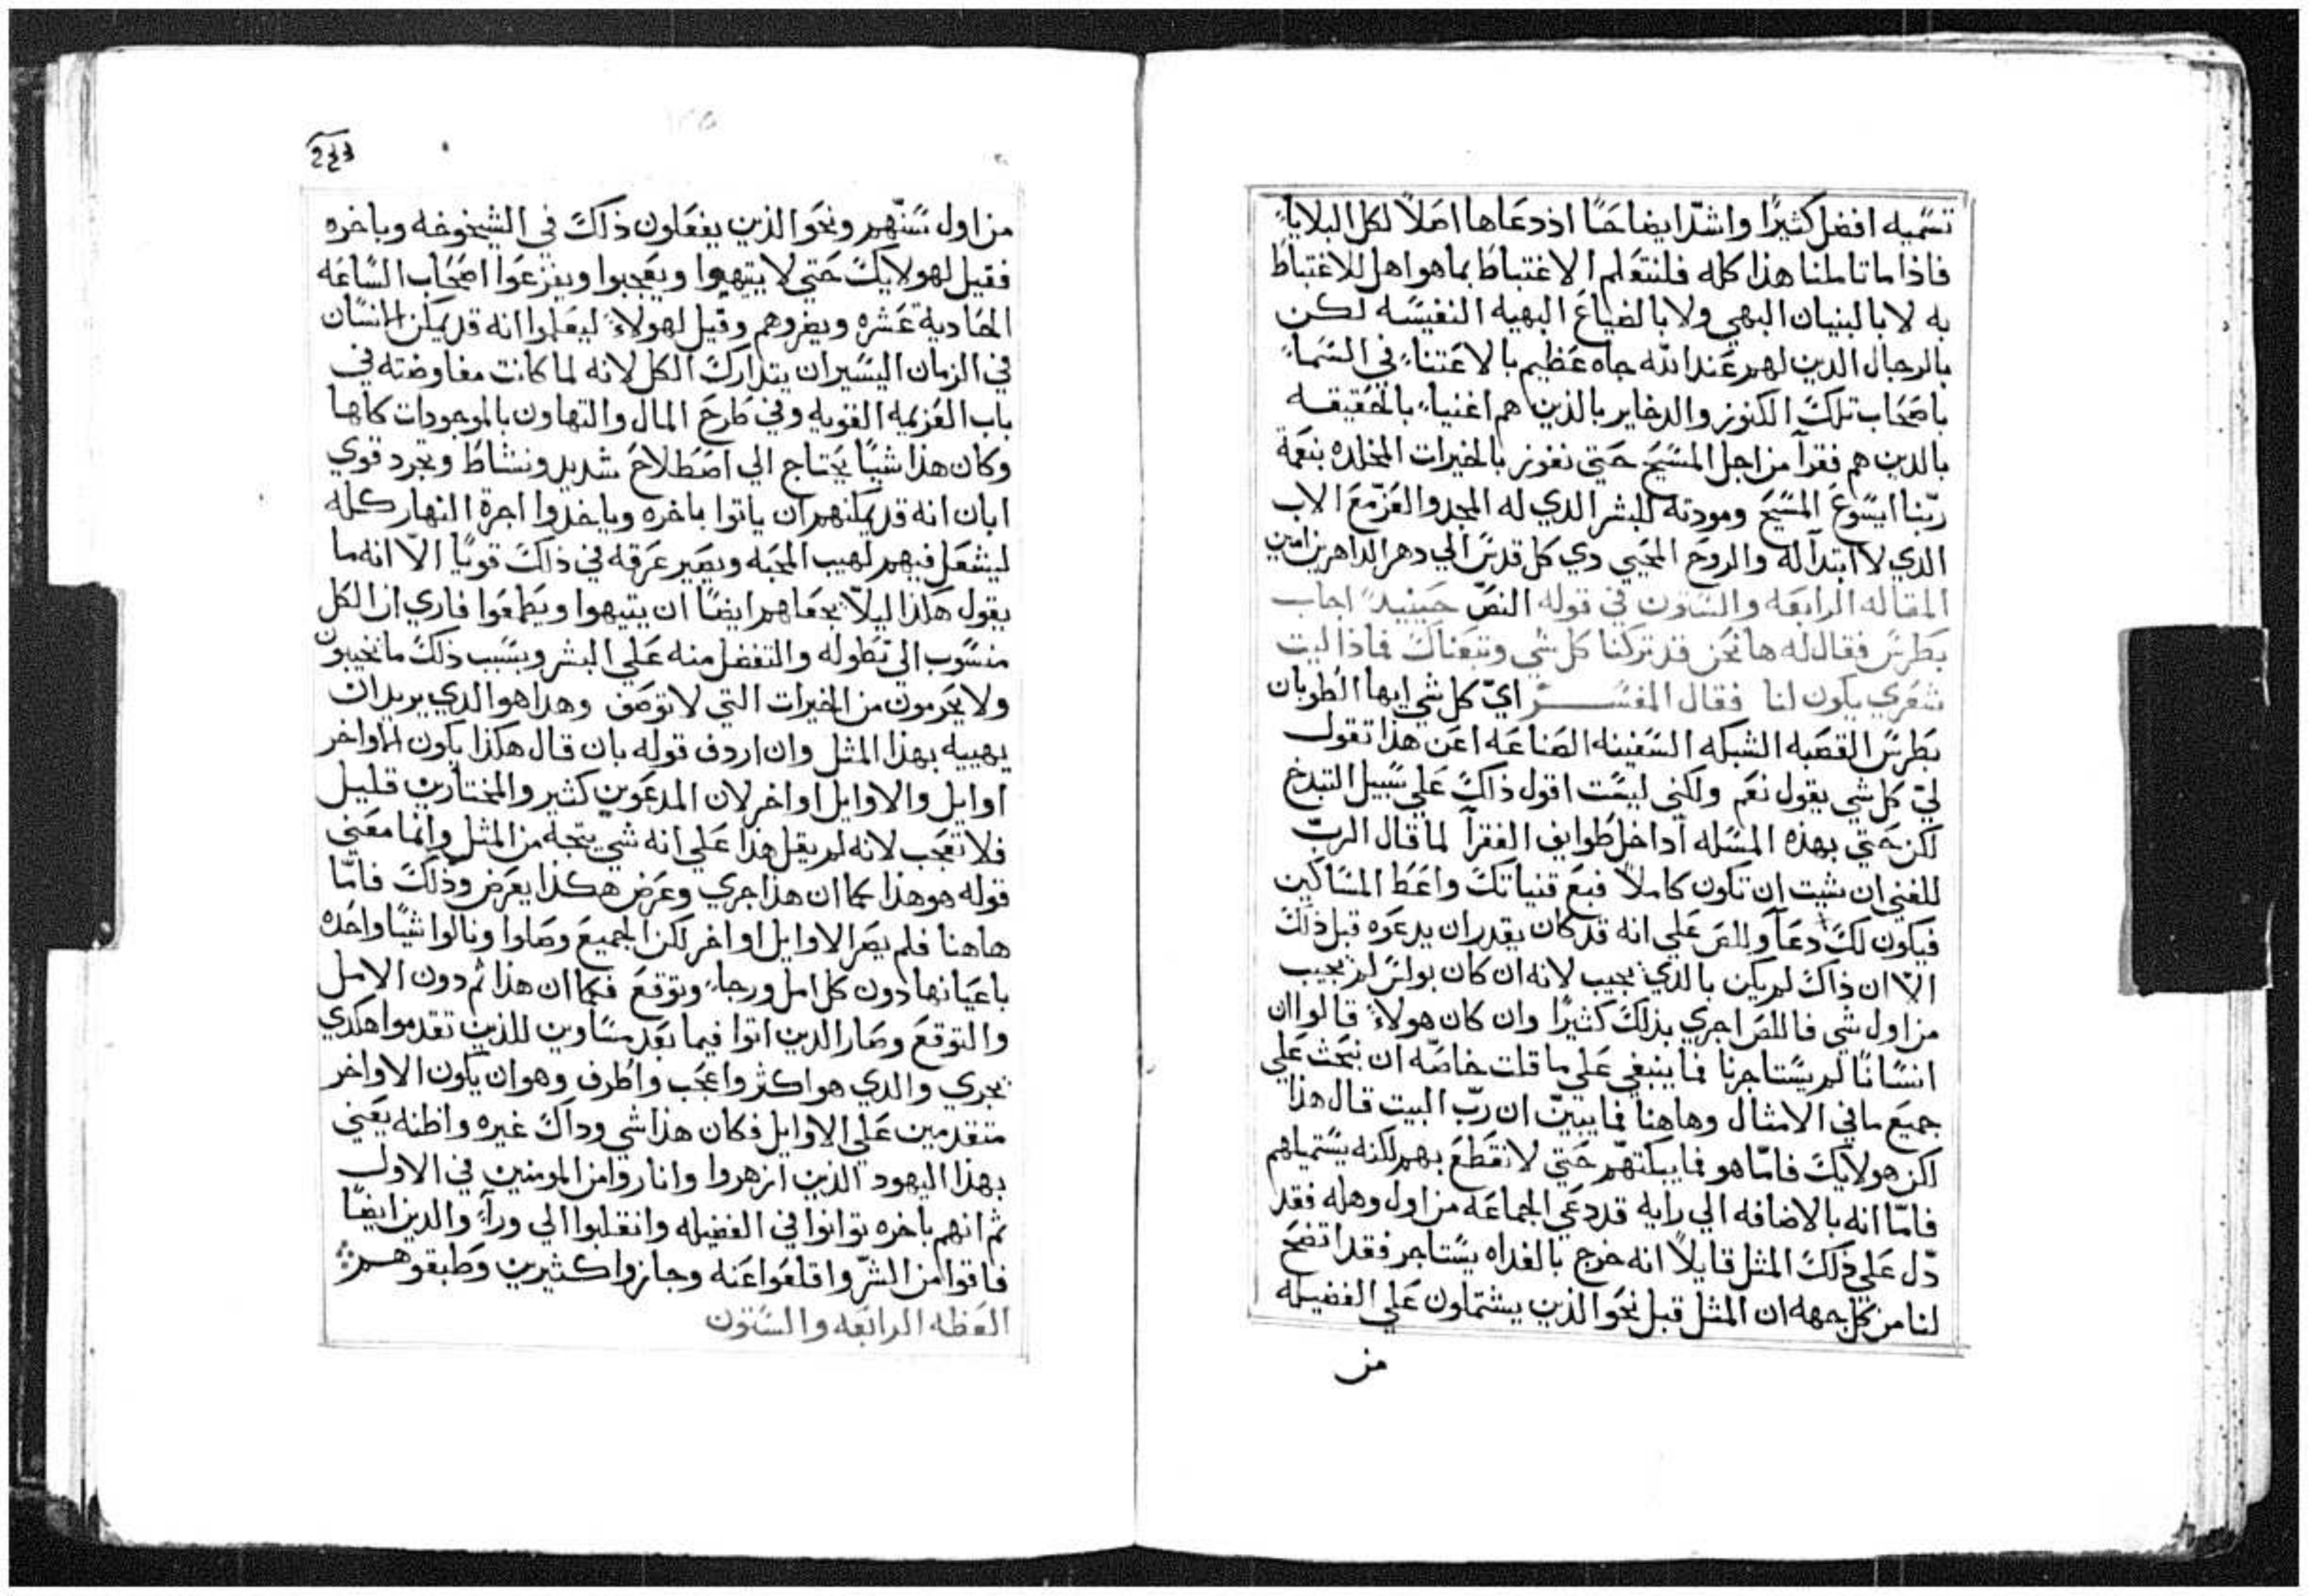 تسميه افضل كثيرًا واشدّ ايضاحًا اذ دعاها اصلاً لكل البلايا
فاذا ما تاملنا هذا كله فلنتعلم الاغتباط بما هو اهل للاغتباط
به لا بالبنيان البهي ولا بالضياع البهيه النفيسه لكن
بالرجال الدين لهم عند الله جاه عظيم بالاعتناء في السماء
باصحاب تلك الكنوز والدخاير بالذين هم اغنياء بالحقيقه
بالدين هم فقرآ من اجل المسيح حتي نفوز بالخيرات المخلده بنعمة
ربّنا ايسوع المسيح ومودته للبشر الدي له المجد والعزّ مع الاب
الدي لا ابتدآ له والروح المحيي دي كل قدس الي دهر الداهرين امين
المقاله الرابعه والستون في قوله النصّ حينيدٍ اجاب
بطرس فقال له ها نحن قد تركنا كل شي وتبعناك فماذا ليت
شعري يكون لنا فقال المفسر ايّ كل شي ايها الطوبان
بطرس القصبه الشبكه السفينه الصناعه اعن هذا تقول
ليّ كل شي يقول نعم ولكني ليست اقول ذلك علي سبيل التبدخ
لكن حتي بهذه المسله اداخل طوايف الفقرآ لما قال الربّ
للغني ان شيت ان تكون كاملاً فبع قنياتك واعط المساكين
فيكون لك دعآ واللص علي انه قد كان يقدر ان يدعوه قبل ذلك
الاّ ان ذاك لم يكن بالدي يجيب لانه ان كان بولس لم يجيب
من اول شي فاللص احري بذلك كثيرًا وان كان هولاء قالوا ان
انسانًا لم يستاجرنا فما ينبغي علي ما قلت خاصّه ان نبحث علي
جميع ما في الامثال وهاهنا فما يبيّن ان ربّ البيت قال هذا
لكن هولايك فامّا هو فما يبكتهم حتي لا تقطع بهم لكنه يستميلهم
فامّا انه بالاضافه الي رايه قد دعي الجماعه من اول وهله فقد
دّل علي ذلك المثل قايلاً انه خرج بالغداه يستاجر فقد اتضح
لنا من كل جهه ان المثل قيل نحو الذين يشتملون علي الفضيله
من
من اول سنّهم ونحو الذين يفعلون ذلك في الشيخوخه وباخره
فقيل لهولايك حتي لا يتيهوا ويعجبوا ويفزعوا اصحاب الساعه
الحادية عشره ويضروهم وقيل لهولاء ليعلموا انه قد يمكن الانسان
في الزمان اليسير ان يتدارك الكل لانه لما كانت مفاوضته في
باب العزيمه القويه وفي طرح المال والتهاون بالموجودات كلها
وكان هذا شيًا يحتاج الي اصطلاح شديد ونشاط وتجرد قوي
ابان انه قد يمكنهم ان ياتوا باخره وياخدوا اجرة النهار كله
ليشعل فيهم لهيب المحبه ويصير عرقه في ذلك قويًا الاّ انه ما
يقول هكذا ليلاّ يجعلهم ايضًا ان يتيهوا ويطمعوا فاري ان الكل
منسوب الي تطوله والتفضل منه علي البشر وبسبب ذلك ما يخيبون
ولا يحرمون من الخيرات التي لا توصف وهدا هو الدي يريد ان
يهييه بهذا المثل وان اردف قوله بان قال هكذا يكون الاواخر
اوايل والاوايل اواخر لان المدعوين كثير والمختارين قليل
فلا تعجب لانه لم يقل هذا علي انه شي يتجه من المثل وانما معني
قوله هو هذا كما ان هذا جري وعرض هكذا يعرض وذلك فامّا
هاهنا فلم يصر الاوايل اواخر لكن الجميع وصلوا ونالوا شيًا واحده
باعيانها دون كل امل ورجاء وتوقع فكما ان هذا تم دون الامل
والتوقع وصار الدين اتوا فيما بعد مساوين للذين تقدموا هكدي
يجري والدي هو اكثر واعجب واطرف وهو ان يكون الاواخر
متقدمين علي الاوايل فكان هذا شي وداك غيره واظنه يعني
بهذا اليهود الذين ازهروا واناروا من المومنين في الاول
ثم انهم باخره توانوا في الفضيله وانقلبوا الي ورآء والدين ايضًا
فاقوا من الشرّ واقلعوا عنه وجازوا كثيرين وطبقوهم
العظه الرابعه والستون